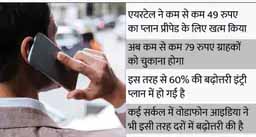 एयरटेल ने कम से कम 49 रुपए
का प्लान प्रीपेड के लिए खत्म किया
अब कम से कम 79 रुपए ग्राहकों
को चुकाना होगा
इस तरह से 60% की बढ़ोत्तरी इंट्री
प्लान में हो गई है
कई सर्कल में वोडाफोन आइडिया ने
भी इसी तरह दरों में बढ़ोत्तरी की है